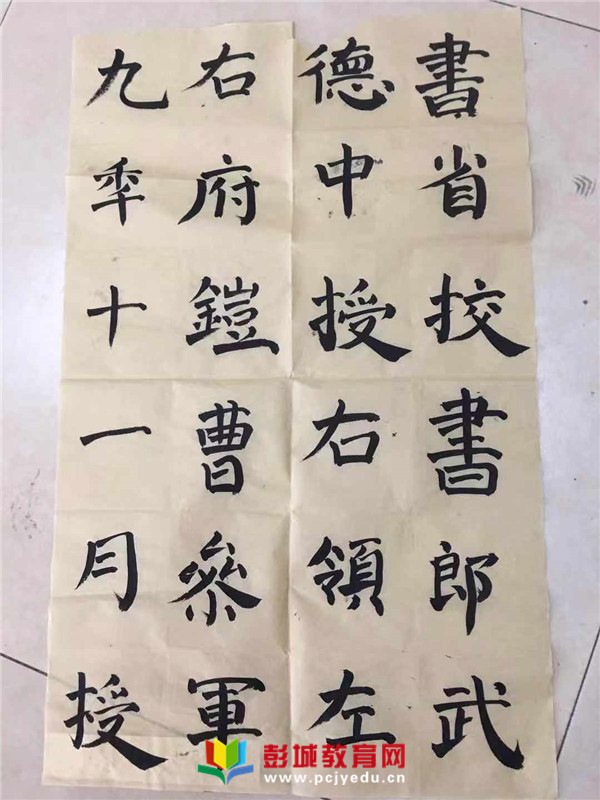 書省挍書郎武
德中授右領左
右府鎧曹叅軍
九年十一月授
彭城教育网
www.pcjyedu.cn